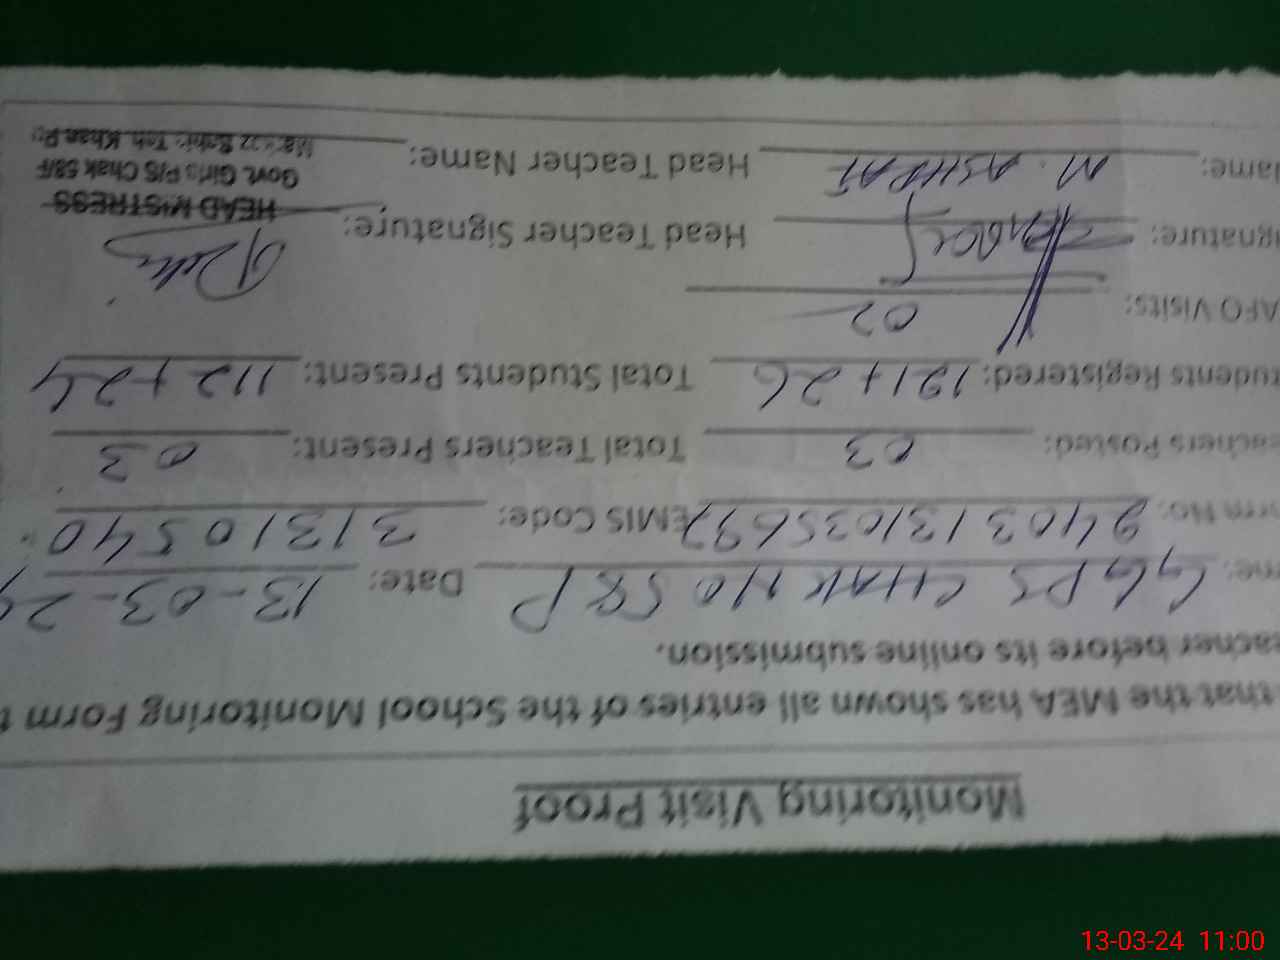 Monitoring Visit Proof
that the MEA has shown all entries of the School Monitoring Form t
eacher before its online submission.
me: GGPS CHAK NO 58P Date: 13-03-24
orm No: EMIS Code: 31310540
eachers Posted: 03 Total Teachers Present: 03
tudents Registered: 121+26 Total Students Present: 112+24
AFO Visits: 02
gnature: Head Teacher Signature:
HEAD MISTRESS
Govt. Girls P/S Chak 58/F
Name: M. ASHRAF Head Teacher Name:
13-03-24 11:00